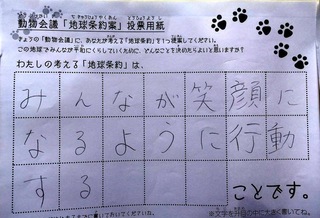 動物会議「地球条約案」投票用紙
きょうの「動物会議」に、あなたが考える「地球条約」を1つ提案してください。
この地球でみんなが平和にくらしていくために、どんなことを決めたらよいと思いますか?
わたしの考える「地球条約」は、
みんなが笑顔に
なるように行動
する
ことです。